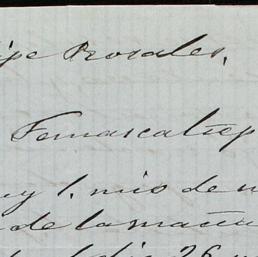 ipe Rosales,
Temascaltep
uy S. mio de m
de la maña
el dia 26